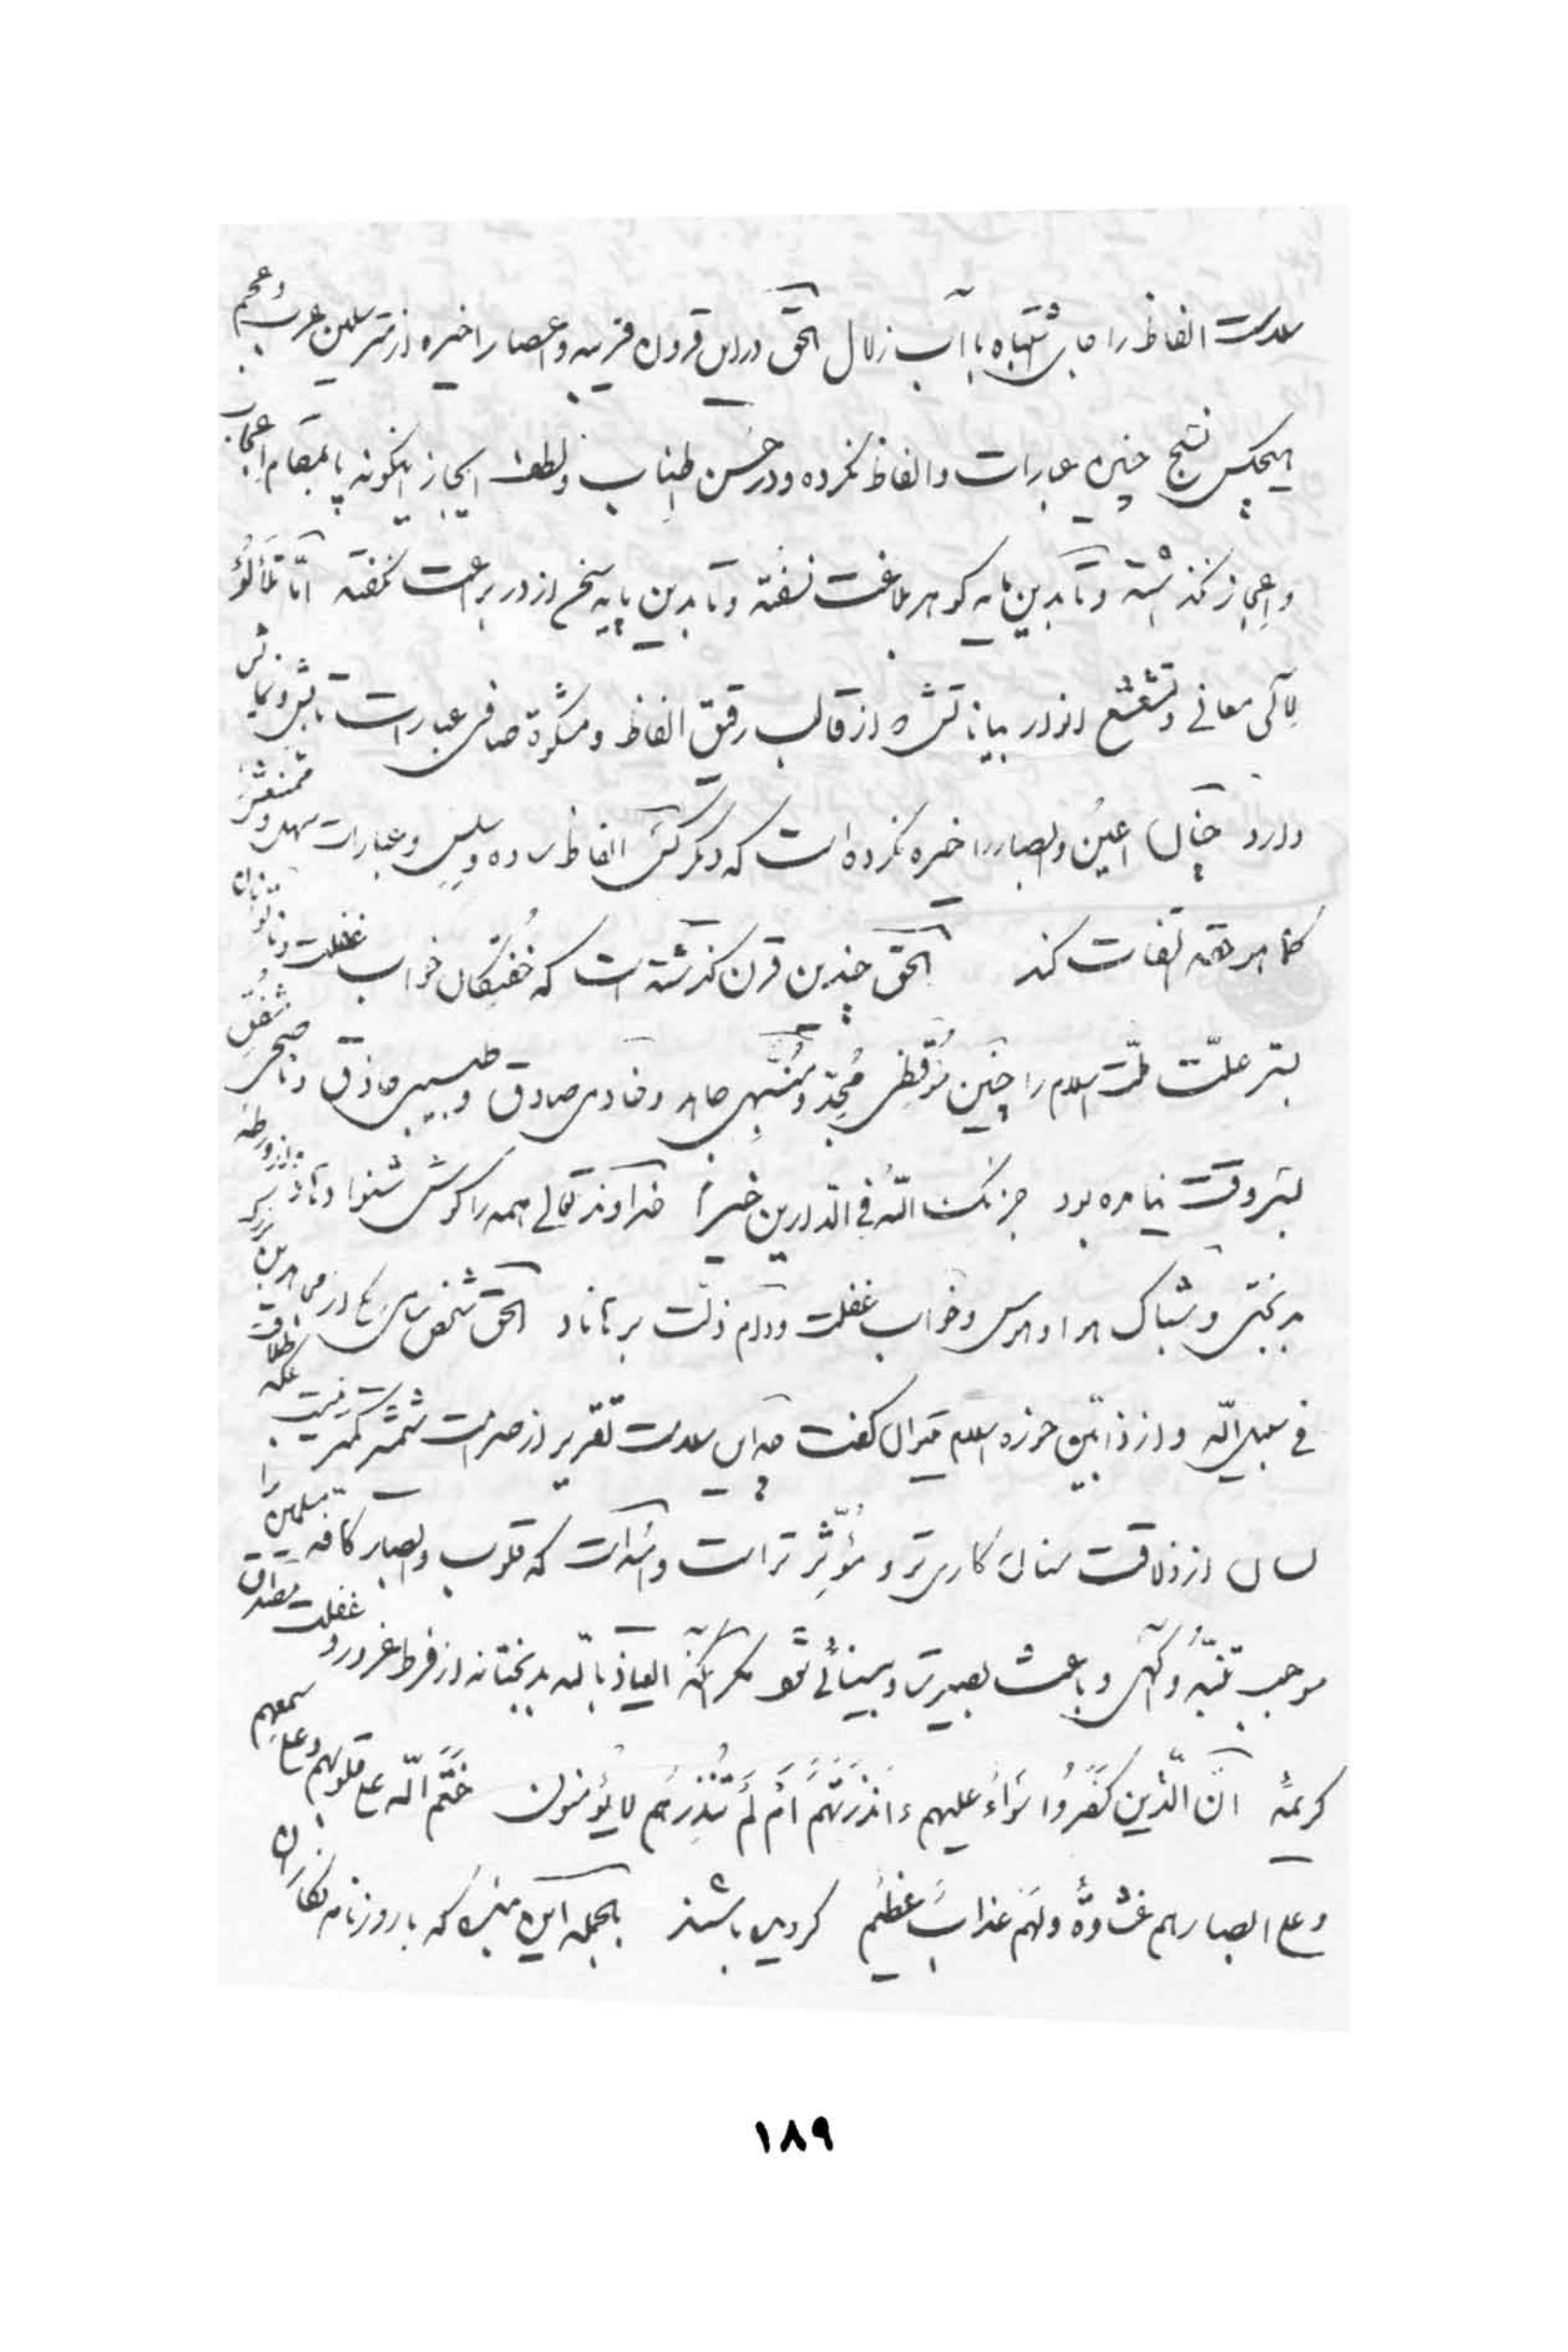 سلاست الفاظ را جای اشتباه با آب زلال الحق در این قرون قریبه و اعصار اخیره از مترسلین عرب و عجم
هیچکس نسج چنین عبارات و الفاظ نکرده و در حسن اطناب و لطف ایجاز اینگونه پا بمقام اعجاب
و اعجاز نگذاشته و تا بدین مایه گوهر بلاغت نسفته و تا بدین پایه سخن از در براعت نگفته امّا تلألؤ
لآلی معانی و تشعشع انوار بیاناتش از قالب رقیق الفاظ و مشکوة صافی عبارات تابش و نمایش
دارد چنان اعین و ابصار را خیره نکرده است که دگر کس الفاظ ساده و سلیس و عبارات سهل و ممتنعش
التفات کند الحق چندین قرن گذشته است که خفتگان خواب غفلت و ناتوانان
بستر علّت ملّت اسلام را چنین موقظی مجدّ و منبّهی جاهد و منادی صادق و طبیبی حاذق و ناصحی مشفق
بسروقت نیامده بود جزاک الله فی الدارین خیراً خداوند تعالی همه را گوش شنوا دهاد و از ورطه
بدبختی و شباک هوا و هوس و خواب غفلت و دام ذلّت برهاناد الحق شخص سامی را از مجاهدین
فی سبیل الله و از ذابّین حوزه اسلام میتوان گفت چه این سلاست تقریر از صرامت شمشیر و طلاقت
لسان از ذلاقت سنان کاری‌تر و مؤثّرتر است و که قلوب و ابصار کافه مسلمین را
موجب تنبّه و آگهی و باعث بصیرت و بینائی شود مگر آنکه العیاذ بالله بدبختانه از فرط غرور و غفلت مصداق
کریمهٔ انّ الّذین کفروا سواءٌ علیهم ءانذرتهم ام لم تنذرهم لا یؤمنون ختم الله علی قلوبهم و علی سمعهم
و علی ابصارهم غشاوةٌ و لهم عذابٌ عظیم گردیده باشند بالجمله که با روزنامه نگاران
۱۸۹